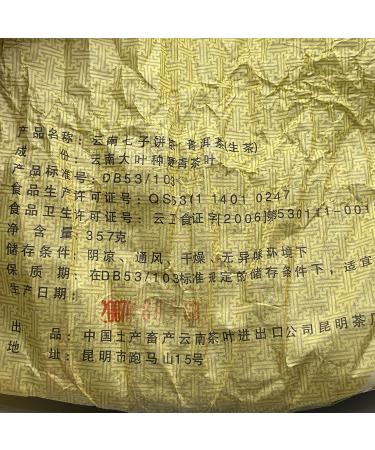 产品名称：云南七子饼茶·普洱茶(生茶)
成 份：云南大叶种晒青茶叶
产品标准号：DB53/103
食品生产许可证号：QS5311 1401 0247
食品卫生许可证号：云卫食证字[2006]第530111-001
净 含 量：357克
储存条件：阴凉、通风、干燥、无异味环境下
保 质 期：在DB53/103标准规定的储存条件下，适宜
生产日期：
2007
出 品：中国土产畜产云南茶叶进出口公司昆明茶厂
地 址：昆明市跑马山15号